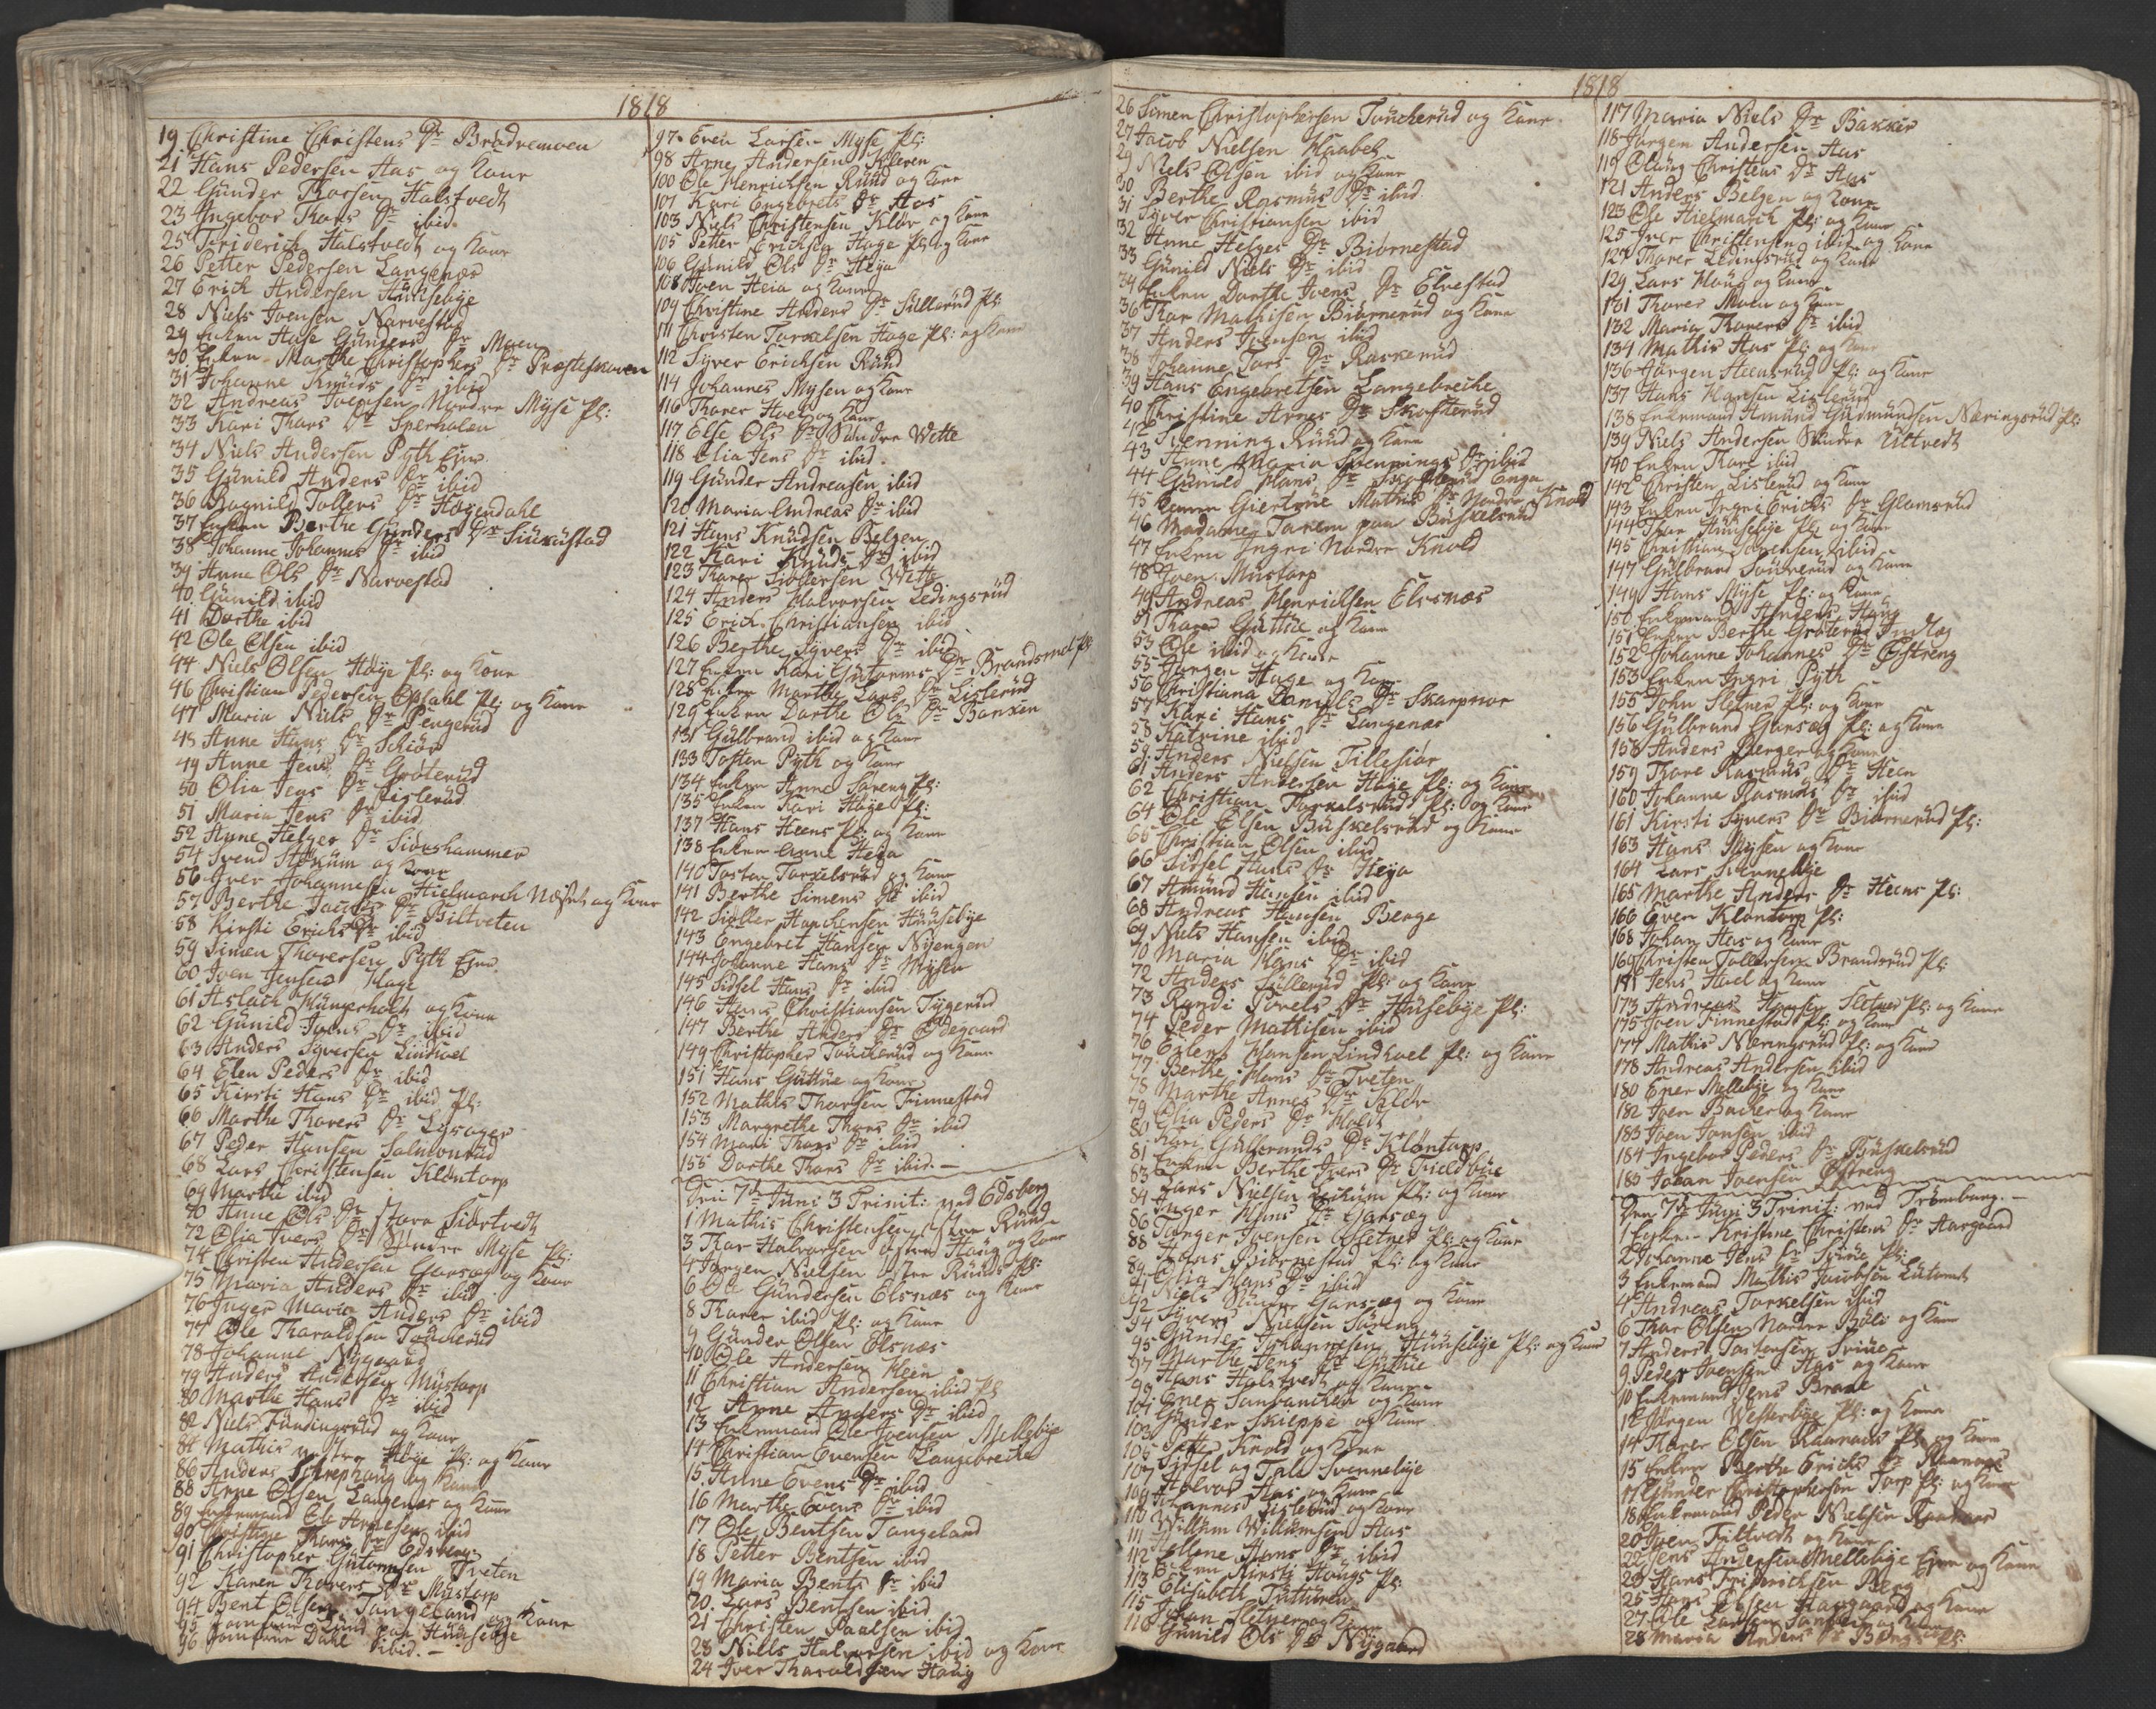 1818
19 Christine Christens Dr Brødremoen
21 Hans Pedersen Aas og Kone
22 Gunder Thorsen Halstvedt
23 Ingebor Thors Dr ibid
25 Friderich Halstvedt og Kone
26 Petter Pedersen Langenæs
27 Erich Andersen Huusebye
28 Niels Joensen Narvestad
29 Enken Aase Gunders Dr Moen
30 Enken Marthe Christophers Dr Præsteskoven
31 Johanne Knuds Dr ibid
32 Andreas Joensen Nordre Myse Pl:
33 Kari Thors Dr Sperholen
34 Niels Andersen Pyth Ejer
35 Gunild Anders Dr ibid
36 Ragnild Tollers Dr Hagendahl
37 Enken Berthe Gunders Dr
38 Johanne Johannes Dr ibid
39 Anne Ols Dr Narvestad
40 Gunild ibid
41 Dorthe ibid
42 Ole Olsen ibid
44 Niels Olsen Høye Pl: og Kone
46 Christian Pedersen Opsahl Pl: og Kone
47 Maria Niels Dr Tengerud
48 Anne Hans Dr Schiør
49 Anne Jens Dr Grøterud
50 Olia Jens Dr Lislerud
51 Maria Jens Dr ibid
52 Anne Helges Dr Sionshammer
54 Svend og Kone
56 Iver Johannesen Hielmarch og Kone
57 Berthe Jacobs Dr Biltveten
58 Kirsti Erichs Dr ibid
59 Simen Thoresen Pyth Ejer
60 Joen Jensen Hage
61 Aslach og Kone
62 Gunild Joens Dr ibid
63 Anders Syversen Lindhoel
64 Elen Peders Dr ibid
65 Kirsti Hans Dr ibid Pl:
66 Marthe Thorers Dr
67 Peder Hansen Salmonrud
68 Lars Christensen Kløntorp
69 Marthe ibid
70 Anne Ols Dr Store
72 Olia Ivers Dr Søndre Myse Pl:
74 Christen Andersen Garsæg og Kone
75 Maria Anders Dr ibid
76 Inger Maria Anders Dr ibid
77 Ole Tharaldsen Toucherud
78 Johanne Nygaard
79 Anders Andersen Mustorp
80 Marthe Hans Dr ibid
82 Niels Fundingsrud og Kone
84 Mathis Høye Pl: og Kone
86 Anders og Kone
88 Arne Olsen Langenæs og Kone
89 Enkemand Ole Arnesen ibid
90 Christine Thors Dr Edsberg
91 Christopher Gutormsen Tveten
92 Karen Thorers Dr Mustorp
94 Bent Olsen Tangeland og Kone
95 Lund paa Huusebye
96 Dahl ibid.
97 Even Larsen Myse Pl:
98 Arne Andersen Kleven
100 Ole Henrichsen Ruud og Kone
101 Kari Engebrets Dr Aas
103 Niels Christensen Klør og Kone
105 Petter Erichsen Hage Pl: og Kone
106 Gunild Ols Dr Heja
108 Joen Heia og Kone
109 Christine Anders Dr Sullerud Pl:
111 Christen Torkelsen Hage Pl: og Kone
112 Syver Erichsen Ruud
114 Johannes Mysen og Kone
116 Thorer Hoel og Kone
117 Else Ols Dr Søndre Wette
118 Olia Jens Dr ibid
119 Gunder Andreasen ibid
120 Maria Andreas Dr ibid
121 Hans Knudsen Belgen
122 Kari Knuds Dr ibid
123 Thorer Siøllersen Wette
124 Anders Halvorsen Ledingsrud
125 Erich Christiansen ibid
126 Berthe Syvers Dr ibid
127 Enken Kari Gutorms Dr Brandsrud Pl:
128 Enken Marthe Lars Dr Lislerud
129 Enken Dorthe Ols Dr Banken
131 Gulbrand ibid og Kone
133 Tosten Pyth og Kone
134 Enken Anne Søreng Pl:
135 Enken Kari Høye Pl:
137 Hans Heens Pl: og Kone
138 Enken Anne Heia
140 Tosten Torkelsrud og Kone
141 Berthe Simens Dr ibid
142 Siøller Huusebye
143 Engebret Hansen Nyengen
144 Johanne Hans Dr Mysen
145 Sidsel Hans Dr ibid
146 Hans Christiansen Tygerud
147 Berthe Anders Dr Ødegaard
149 Christopher Toucherud og Kone
151 Hans Guttue og Kone
152 Mathis Thorsen Finnestad
153 Margrethe Thors Dr ibid
154 Mari Thors Dr ibid
155 Dorthe Thors Dr ibid.
Den 7de Juni 3 Trinit: ved Edsberg
1 Mathis Christensen Østre Ruud
3 Thor Halvorsen Østre Haug og Kone
4 Jørgen Nielsen Østre Ruuds Pl:
6 Ole Gundersen Elsnæs og Kone
8 Thorer ibid Pl: og Kone
9 Gunder Olsen Elsnæs
10 Ole Andersen Kleen
11 Christian Andersen ibid Pl
12 Anne Anders Dr ibid
13 Enkemand Ole Joensen Mellebye
14 Christian Evensen Langebreche
15 Anne Evens Dr ibid
16 Marthe Evens Dr ibid
17 Ole Bentsen Tangeland
18 Petter Bentsen ibid
19 Maria Bents Dr ibid
20 Lars Bentsen ibid
21 Christen Paalsen ibid
23 Niels Halvorsen ibid og Kone
24 Iver Tharaldsen Haug
1818
26 Simen Christophersen Toucherud og Kone
27 Jacob Nielsen Haabek
29 Niels Olsen ibid og Kone
30 Berthe Rasmus Dr ibid
31 Syver Christiansen ibid
32 Anne Helges Dr Biørnestad
33 Gunild Niels Dr ibid
34 Enken Dorthe Joens Dr Elvestad
36 Thor Mathisen Biørnerud og Kone
37 Anders Joensen ibid
38 Johanne Tors Dr Raskerud
39 Hans Engebretsen Langebreche
40 Christine Arnes Dr Skofterud
42 Svenning Ruud og Kone
43 Anne Maria Svennings Dr ibid
44 Gunild Hans Dr Skofterud Enga
45 Giertrue Mathis Dr Nordre Knold
46 Madame Tarem paa Buskelsrud
47 Enken Ingri Nordre Knold
48 Joen Mustorp
49 Andreas Henrichsen Elvsnæs
51 Thorer Guttue og Kone
53 Ole ibid og Kone
55 Jørgen Hage og Kone
56 Christiana Daniels Dr Skarpnor
57 Kari Hans Dr Langenæs
58 Katrine ibid
59 Anders Nielsen Tillesiør
61 Anders Andersen Høye Pl: og Kone
62 Christian Torkelsrud Pl: og Kone
64 Ole Olsen Buskelsrud og Kone
65 Christian Olsen ibid
66 Sidsel Hans Dr Heya
67 Amund Hansen ibid
68 Andreas Hansen Berge
69 Niels Hansen ibid
70 Maria Hans Dr ibid
72 Anders Sullerud Pl: og Kone
73 Randi Povels Dr Huusebye Pl:
74 Peder Mathisen ibid
76 Erlend Hansen Lindhoel Pl: og Kone
77 Berthe Hans Dr Tveten
78 Marthe Arnes Dr Klør
79 Olia Peders Dr Holdt
80 Kari Gulbrands Dr Kløntorp
81 Enken Berthe Ivers Dr Fieldbue
83 Lars Nielsen Pl: og Kone
84 Inger Hans Dr Garsæg
86 Tanger Joensen Sletner Pl: og Kone
88 Hans Biørnestad Pl: og Kone
89 Olia Hans Dr ibid
91 Niels Søndre Garsæg og Kone
92 Syver Nielsen Søreng
94 Gunder Johannesen Huusebye Pl: og Kone
95 Marthe Jens Dr Guthue
97 Hans Halstvedt og Kone
99 Ener Sandbachen og Kone
101 Gunder Skieppe og Kone
103 Petter Knold og Kone
105 Sidsel og Svennebye
107 Halvor Aas og Kone
109 Johannes Lislerud og Kone
110 Willum Willumsen Aas
111 Hellene Hans Dr ibid
112 Enken Kirsti Haugs Pl:
113 Elisabeth Tutturen
115 Johan Sletner og Kone
116 Gunild Ols Dr Nygaard
117 Maria Niels Dr Bakker
118 Jørgen Andersen Aas
119 Olaug Christens Dr Aas
121 Anders Belgen og Kone
123 Ole Hielmarch Pl: og Kone
125 Iver Christensen ibid og Kone
127 Thorer Ledingsrud og Kone
129 Lars Haug og Kone
131 Thorer Moen og Kone
132 Maria Thorers Dr ibid
134 Mathis Aas Pl: og Kone
136 Jørgen Heensrud Pl: og Kone
137 Hans Hansen Lislerud
138 Enkemand Amund Gudmundsen Næringsrud Pl:
139 Niels Andersen Søndre Ultvedt
140 Enken Thore ibid
142 Christen Lislerud og Kone
143 Enken Ingri Erichs Dr Glamsrud
144 Thor Huusebye Pl: og Kone
145 Christian Sørensen ibid
147 Gulbrand og Kone
149 Hans Myse Pl: og Kone
150 Enkemand Anders Haug
151 Enken Berthe Grøterud Indlæg
152 Johanne Johannes Dr Østreng
153 Enken Ingri Pyth
155 John Sletner Pl: og Kone
156 Gulbrand Garsæg Pl: og Kone
158 Anders Berger og Kone
159 Thore Rasmus Dr Heen
160 Johanne Rasmus Dr ibid
161 Kirsti Syvers Dr Biørnerud Pl:
163 Hans Mysen og Kone
164 Lars Svennebye
165 Marthe Anders Dr Heens Pl:
166 Even Kløntorp Pl:
168 Johan Aas og Kone
169 Christen Tollersen Brandsrud Pl:
171 Jens Hoel og Kone
173 Andreas Hansen Sletner Pl: og Kone
175 Joen Finnestad Pl: og Kone
177 Mathis Næringsrud Pl: og Kone
178 Andreas Andersen ibid
180 Ener Mellebye og Kone
182 Joen Backer og Kone
183 Joen Jonsen ibid
184 Ingebor Peders Dr Buskelsrud
185 Johan Joensen Østreng
Den 7de Juni 3 Trinit: ved Trømborg.
1 Enken Kristine Christens Dr Aargaard
2 Johanne Jens Dr Triue Pl:
3 Enkemand Mathis Jacobsen
4 Andreas Torkelsen ibid
6 Thor Olsen Nordre og Kone
7 Anders Tostensen Triue
9 Peder Joensen Aas og Kone
10 Enkemand Jens Brane
12 Jørgen Westerbye Pl: og Kone
14 Thorer Olsen Raanaas Pl: og Kone
15 Enken Berthe Erichs Dr Raanaas
17 Gunder Christophersen Torp Pl: og Kone
18 Enkemand Peder Nielsen Raanaas
20 Joen Tiltvedt og Kone
22 Jens Andersen Mellebye Ejer og Kone
23 Hans Friderichsen Berg
25 Hans Olsen Haargaard og Kone
27 Ole Larsen og Kone
28 Maria Anders Dr Berg Pl: